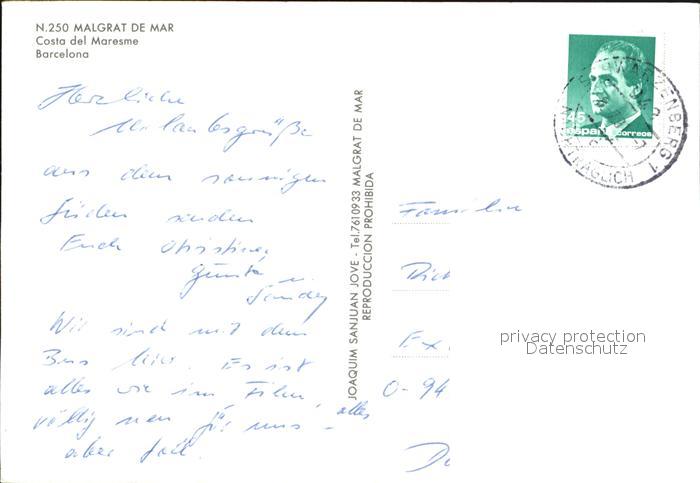 N.250 MALGRAT DE MAR
Costa del Maresme
Barcelona
Herzliche
Urlaubsgrüße
aus dem sonnigen
Süden senden
Euch Christine,
Günter u.
Sandy
Wir sind mit dem
Bus hier. Es ist
alles wie im Film,
völlig neu für uns -
alles
aber toll.
JOAQUIM SANJUAN JOVE - Tel.7610933 MALGRAT DE MAR
REPRODUCCION PROHIBIDA
45
españa correos
SCHWARZENBERG 1
NACHTRÄGLICH
Familie
O-94
privacy protection
Datenschutz